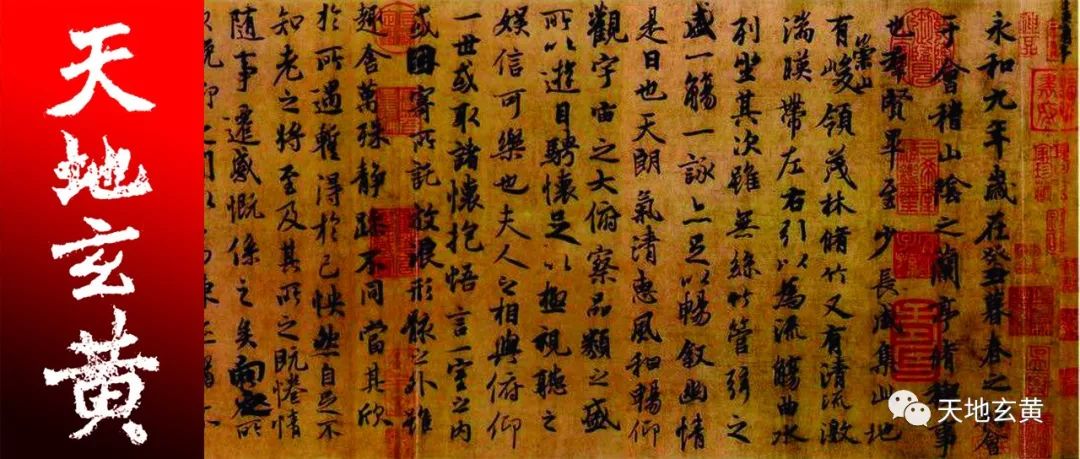 天地玄黄
永和九年歲在癸丑暮春之初會
于會稽山陰之蘭亭脩稧事
也群賢畢至少長咸集此地
有崇山峻領茂林脩竹又有清流激
湍暎帶左右引以為流觴曲水
列坐其次雖無絲竹管弦之
盛一觴一詠亦足以暢叙幽情
是日也天朗氣清惠風和暢仰
觀宇宙之大俯察品類之盛
所以遊目騁懷足以極視聽之
娛信可樂也夫人之相與俯仰
一世或取諸懷抱悟言一室之內
或因寄所託放浪形骸之外雖
趣舍萬殊靜躁不同當其欣
於所遇蹔得於己怏然自足不
知老之將至及其所之既惓情
隨事遷感慨係之矣向之所
天地玄黄